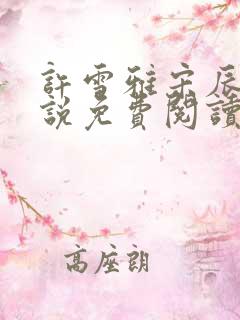 許雪雅宋辰
說免費閱讀
高座朗